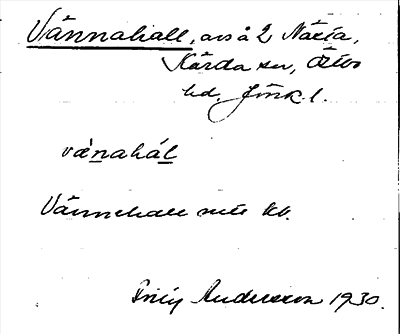 Vännahall, avs å 2 Nästa,
Kärda sn, Östbo
hd. Jönk. l.
vä̀nahál
Vännehall nuv. kb.
Andersson 1930.